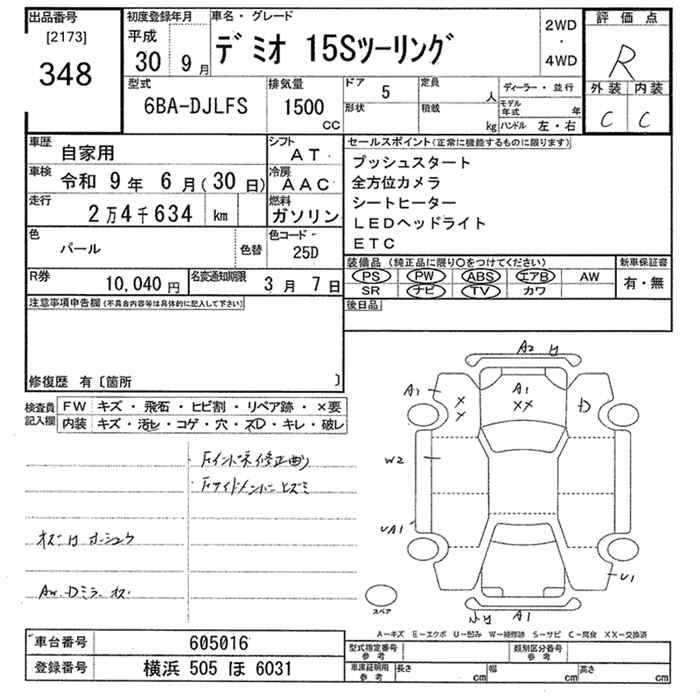 出品番号
[2173]
348
初度登録年月
平成
30 9 月
車名・グレード
デミオ 15Sツーリング
2WD
・
4WD
評価点
R
外装 内装
C C
型式
6BA-DJLFS
排気量
1500
CC
ドア 5
形状
定員 人
積載 kg
ディーラー・並行
モデル年式 年
ハンドル 左・右
車歴
自家用
シフト
AT
セールスポイント(正常に機能するものに限ります)
プッシュスタート
全方位カメラ
シートヒーター
LEDヘッドライト
ETC
車検
令和 9 年 6 月(30日)
冷房
AAC
走行
2万4千634 km
燃料
ガソリン
色
パール
色替
色コード
25D
装備品 (純正品に限り○をつけてください)
新車保証書
PS PW ABS エアB AW
有・無
SR ナビ TV カワ
R券
10,040 円
名変通知期限
3 月 7 日
後日品
注意事項申告欄(不具合内容等は具体的に記入して下さい)
修復歴 有〔箇所 〕
検査員
記入欄
FW キズ・飛石・ヒビ割・リペア跡・×要
内装 キズ・汚れ・コゲ・穴・スD・キレ・破レ
・Fインパネ修正有り
・Fサイドメンバーヒズミ
Aw.Dミラー キズ
A2
A1
A1
XX
X
X
D
W2
UA1
U1
A1
スペア
A-キズ E-エクボ U-凹み W-補修跡 S-サビ C-腐食 XX-交換済
車台番号 605016
登録番号 横浜 505 ほ 6031
型式指定番号
参考
類別区分番号
参考
車庫証明用
参考
長さ cm
幅 cm
高さ cm